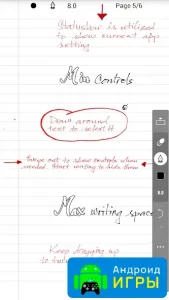 8.0
Page 5/6
Statusbar is utilized
to show current app
setting
Min Controls
Draw around
text to select it
Swipe out to show controls when
needed. Start writing to hide them
8.0
Max writing space
Keep dragging up
to
Андроид
ИГРЫ